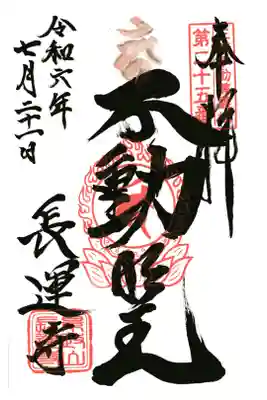 奉拝
第二十五番
不動明王
長運寺
令和六年
七月二十一日